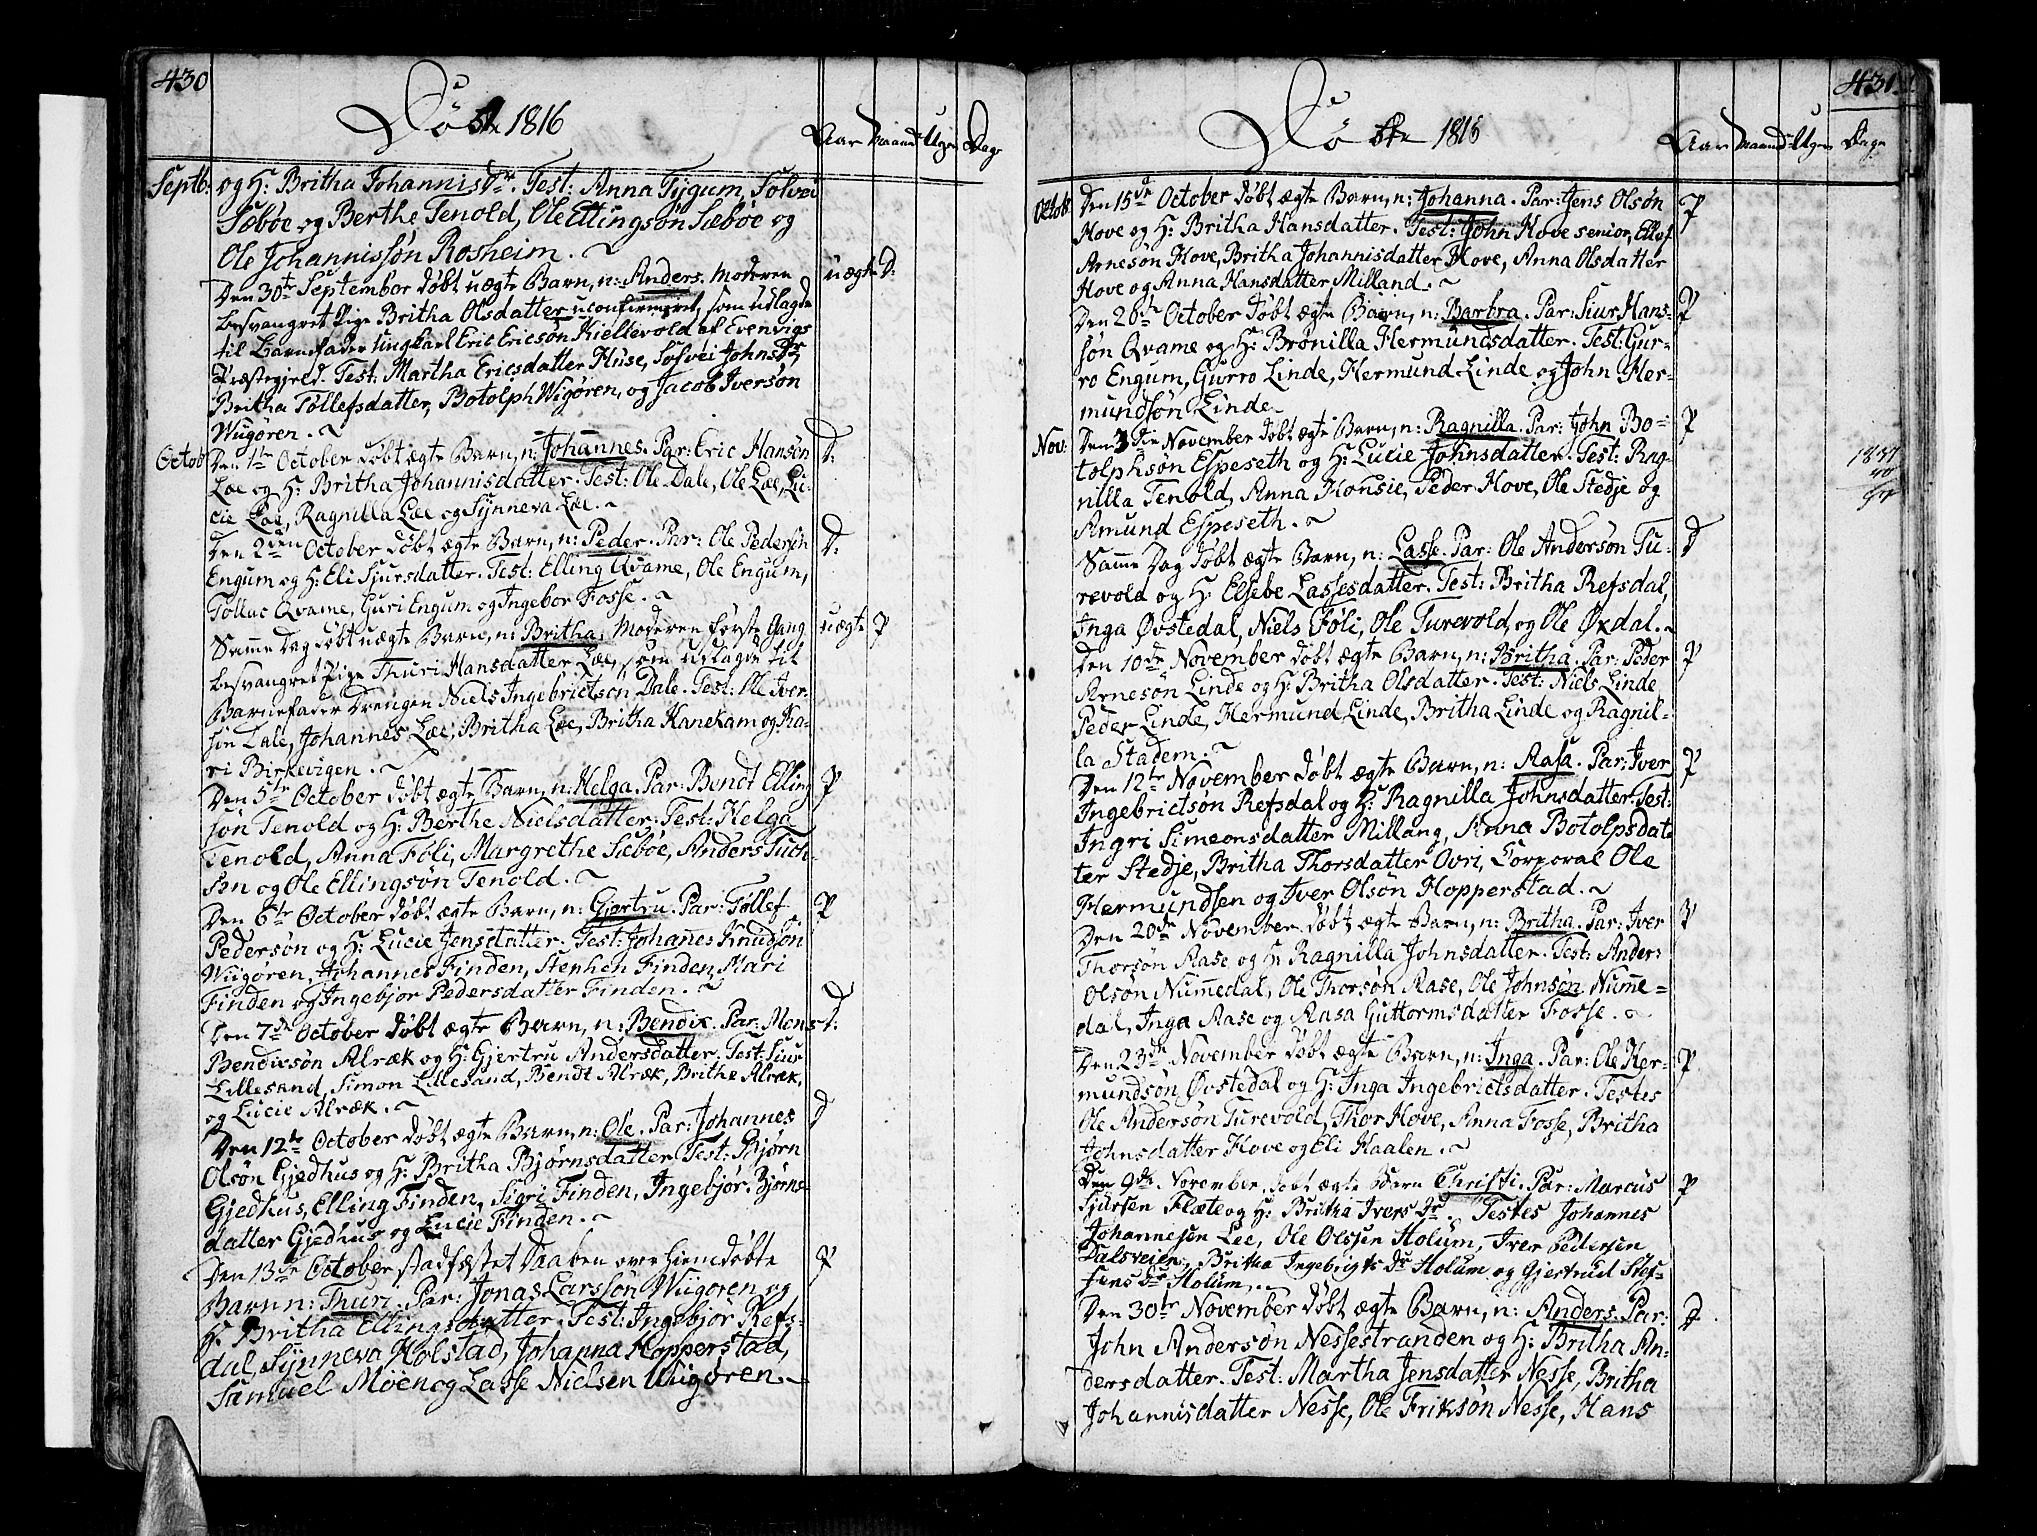 430
Døbte 1816
Aar Maand Uger Dage
Septb: og H: Britha Johannisdr. Test: Anna Tÿgum, Sølvei
Sæbøe og Berthe Tenold, Ole Ellingsøn Sæbøe og
Ole Johannissøn Rosheim.
Den 30te September døbt uægte Barn, n: Anders. Moderen uægte D:
besvangret Pige Britha Olsdatter uconfirmeret, som udlagde
til Barnefader Ungkarl Eric Ericsøn Kiellevold af Evenvigs
Præstegield. Test: Martha Ericsdatter Huse, Sølvei Johnsdr,
Britha Tollefsdatter, Botolph Wigøren, og Jacob Iversøn
Wugøren.
Octob Den 1te October døbt ægte Barn, n: Johannes. Par: Eric Hansøn D:
Lœe og H: Britha Johannisdatter. Test: Ole Dale, Ole Lœe, Lu-
cie Lœe, Ragnilla Lœe og Sÿnneva Lœe.
Den 2den October døbt ægte Barn, n: Peder. Par: Ole Pedersøn D:
Engum og H: Eli Sjursdatter. Test: Elling Qvame, Ole Engum,
Tollac Qvame, Guri Engum og Ingebor Fosse.
Samme Dag døbt uægte Barn, n: Britha. Moderen første Gang uægte P
besvangret Pige Thuri Hansdatter Lœe, som udlagde til
Barnefader Drengen Niels Ingebrictsøn Dale. Test: Ole Iver-
søn Dale, Johannes Lœe, Britha Lœe, Britha Kanekam og Ka-
ri Birkevigen.
Den 5te October døbt ægte Barn, n: Helga. Par: Bendt Elling P
søn Tenold og H: Berthe Nielsdatter. Test: Helga
Tenold, Anna Føli, Margrethe Sæbøe, Anders Tuch-
sen og Ole Ellingsøn Tenold.
Den 6te October døbt ægte Barn, n: Gjertru. Par: Tollef P
Pedersøn og H: Lucie Jensdatter. Test: Johanes Knudsøn
Wiigøren, Johannes Finden, Stephen Finden, Mari
Finden og Ingebjor Pedersdatter Finden.
Den 7de October døbt ægte Barn, n: Bendix. Par: Mons D:
Bendixsøn Alræk og H: Gjertru Andersdatter. Test: Siur
Lillesand, Simon Lillesand, Bendt Alræk, Brithe Alræk,
og Lucie Alræk.
Den 12te October døbt ægte Barn, n: Ole. Par: Johannes D
Olsøn Gjedhus og H: Britha Bjørnsdatter. Test: Bjørn
Gjedhus, Elling Finden, Sigri Finden, Ingebjor Bjørns-
datter Gjedhus og Lucie Finden.
Den 13de October stadfæstet Daaben over hiemdøbte P
Barn n: Thuri. Par: Jonas Larssøn Wiigøren og
H: Britha Ellingsdatter. Test: Ingebjor Refs-
dal, Sÿnneva Holstad, Johanna Hopperstad,
Samuel Møen og Lasse Nielsen Wiigøren.
431
Døbte 1816
Aar Maand Uger Dage
Octob Den 15de October døbt ægte Barn, n: Johanna. Par: Jens Olsøn P
Hove og H: Britha Hansdatter. Test: John Hove senior, Ellef
Arnesøn Hove, Britha Johannisdatter Hove, Anna Olsdatter
Hove og Anna Hansdatter Milland.
Den 20de October døbt ægte Barn, n: Barbra. Par: Siur Hans- P
søn Qvame og H: Brønilla Hermundsdatter. Test: Gur-
ro Engum, Gurro Linde, Hermund Linde og John Her-
mundsøn Linde.
Nov: Den 3die November døbt ægte Barn, n: Ragnilla. Par: John Bo- P
tolphsøn Espeseth og H: Lucie Johnsdatter. Test: Rag-
nilla Tenold, Anna Honsie, Peder Hove, Ole Stedje og
Amund Espeseth.
Samme Dag døbt ægte Barn, n: Lasse. Par: Ole Andersøn Tu- D
revold og H: Elsebe Lassesdatter. Test: Britha Refsdal,
Inga Øvstedal, Niels Føli, Ole Turevold, og Ole Øxdal.
Den 10de November døbt ægte Barn, n: Britha. Par: Peder P
Arnesøn Linde og H: Britha Olsdatter. Test: Niels Linde,
Peder Linde, Hermund Linde, Britha Linde og Ragnil-
la Stadem.
Den 12te November døbt ægte Barn, n: Aasa. Par: Iver P
Ingebrictsøn Refsdal og H: Ragnilla Johnsdatter. Test:
Ingri Simeonsdatter Millang, Anna Botolpsdat-
ter Stedje, Britha Thorsdatter Ovri, Corporal Ole
Hermundsen og Iver Olsøn Hopperstad.
Den 20de November døbt ægte Barn, n: Britha. Par: Iver P
Thorsøn Aase og H: Ragnilla Johnsdatter. Test: Anders
Olsøn Numedal, Ole Thorsøn Aase, Ole Johnsøn Nume-
dal, Inga Aase og Aasa Guttormsdatter Fosse.
Den 23de November døbt ægte Barn, n: Inga. Par: Ole Her- P
mundsøn Øvstedal og H: Inga Ingebrictsdatter. Testes
Ole Andersøn Turevold, Thor Hove, Anna Fosse, Britha
Johnsdatter Hove og Eli Haalen.
Den 9de November, døbt ægte Barn Christi. Par: Marcus P
Sjursen Flæte og H: Britha Ivers Dr. Testes Johannes
Johannesen Lee, Ole Olssen Holum, Iver Pedersen
Dalsveien, Britha Ingebrigts Dr Holum og Gjertrud Stef-
fens dr Holum.
Den 30te November døbt ægte Barn, n: Anders. Par: D
John Andersøn Nessestranden og H: Britha An-
dersdatter. Test: Martha Jensdatter Nesse, Britha
Johannisdatter Nesse, Ole Eriksøn Nesse, Hans